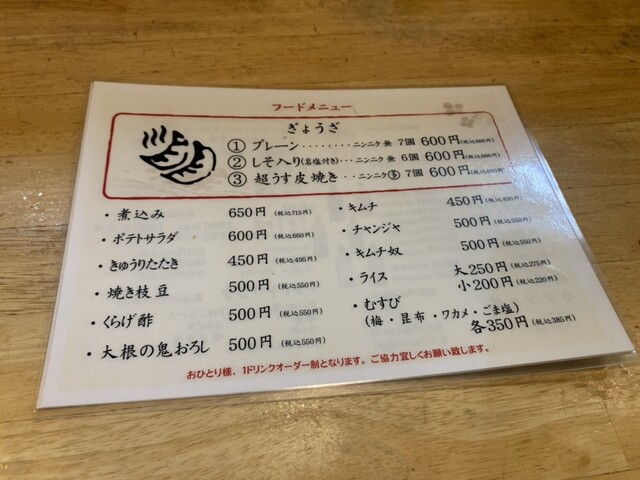 フードメニュー
ぎょうざ
① プレーン ‥‥‥‥ ニンニク 無 7個 600円 (税込660円)
② しそ入り(岩塩付き)‥‥ ニンニク 無 6個 600円 (税込660円)
③ 超うす皮焼き ‥‥ ニンニク 7個 600円 (税込660円)
・煮込み 650円 (税込715円)
・ポテトサラダ 600円 (税込660円)
・きゅうりたたき 450円 (税込495円)
・焼き枝豆 500円 (税込550円)
・くらげ酢 500円 (税込550円)
・大根の鬼おろし 500円 (税込550円)
・キムチ 450円 (税込495円)
・チャンジャ 500円 (税込550円)
・キムチ奴 500円 (税込550円)
・ライス 大250円 (税込275円)
小200円 (税込220円)
・むすび
(梅・昆布・ワカメ・ごま塩)
各350円 (税込385円)
おひとり様、1ドリンクオーダー制となります。ご協力宜しくお願い致します。